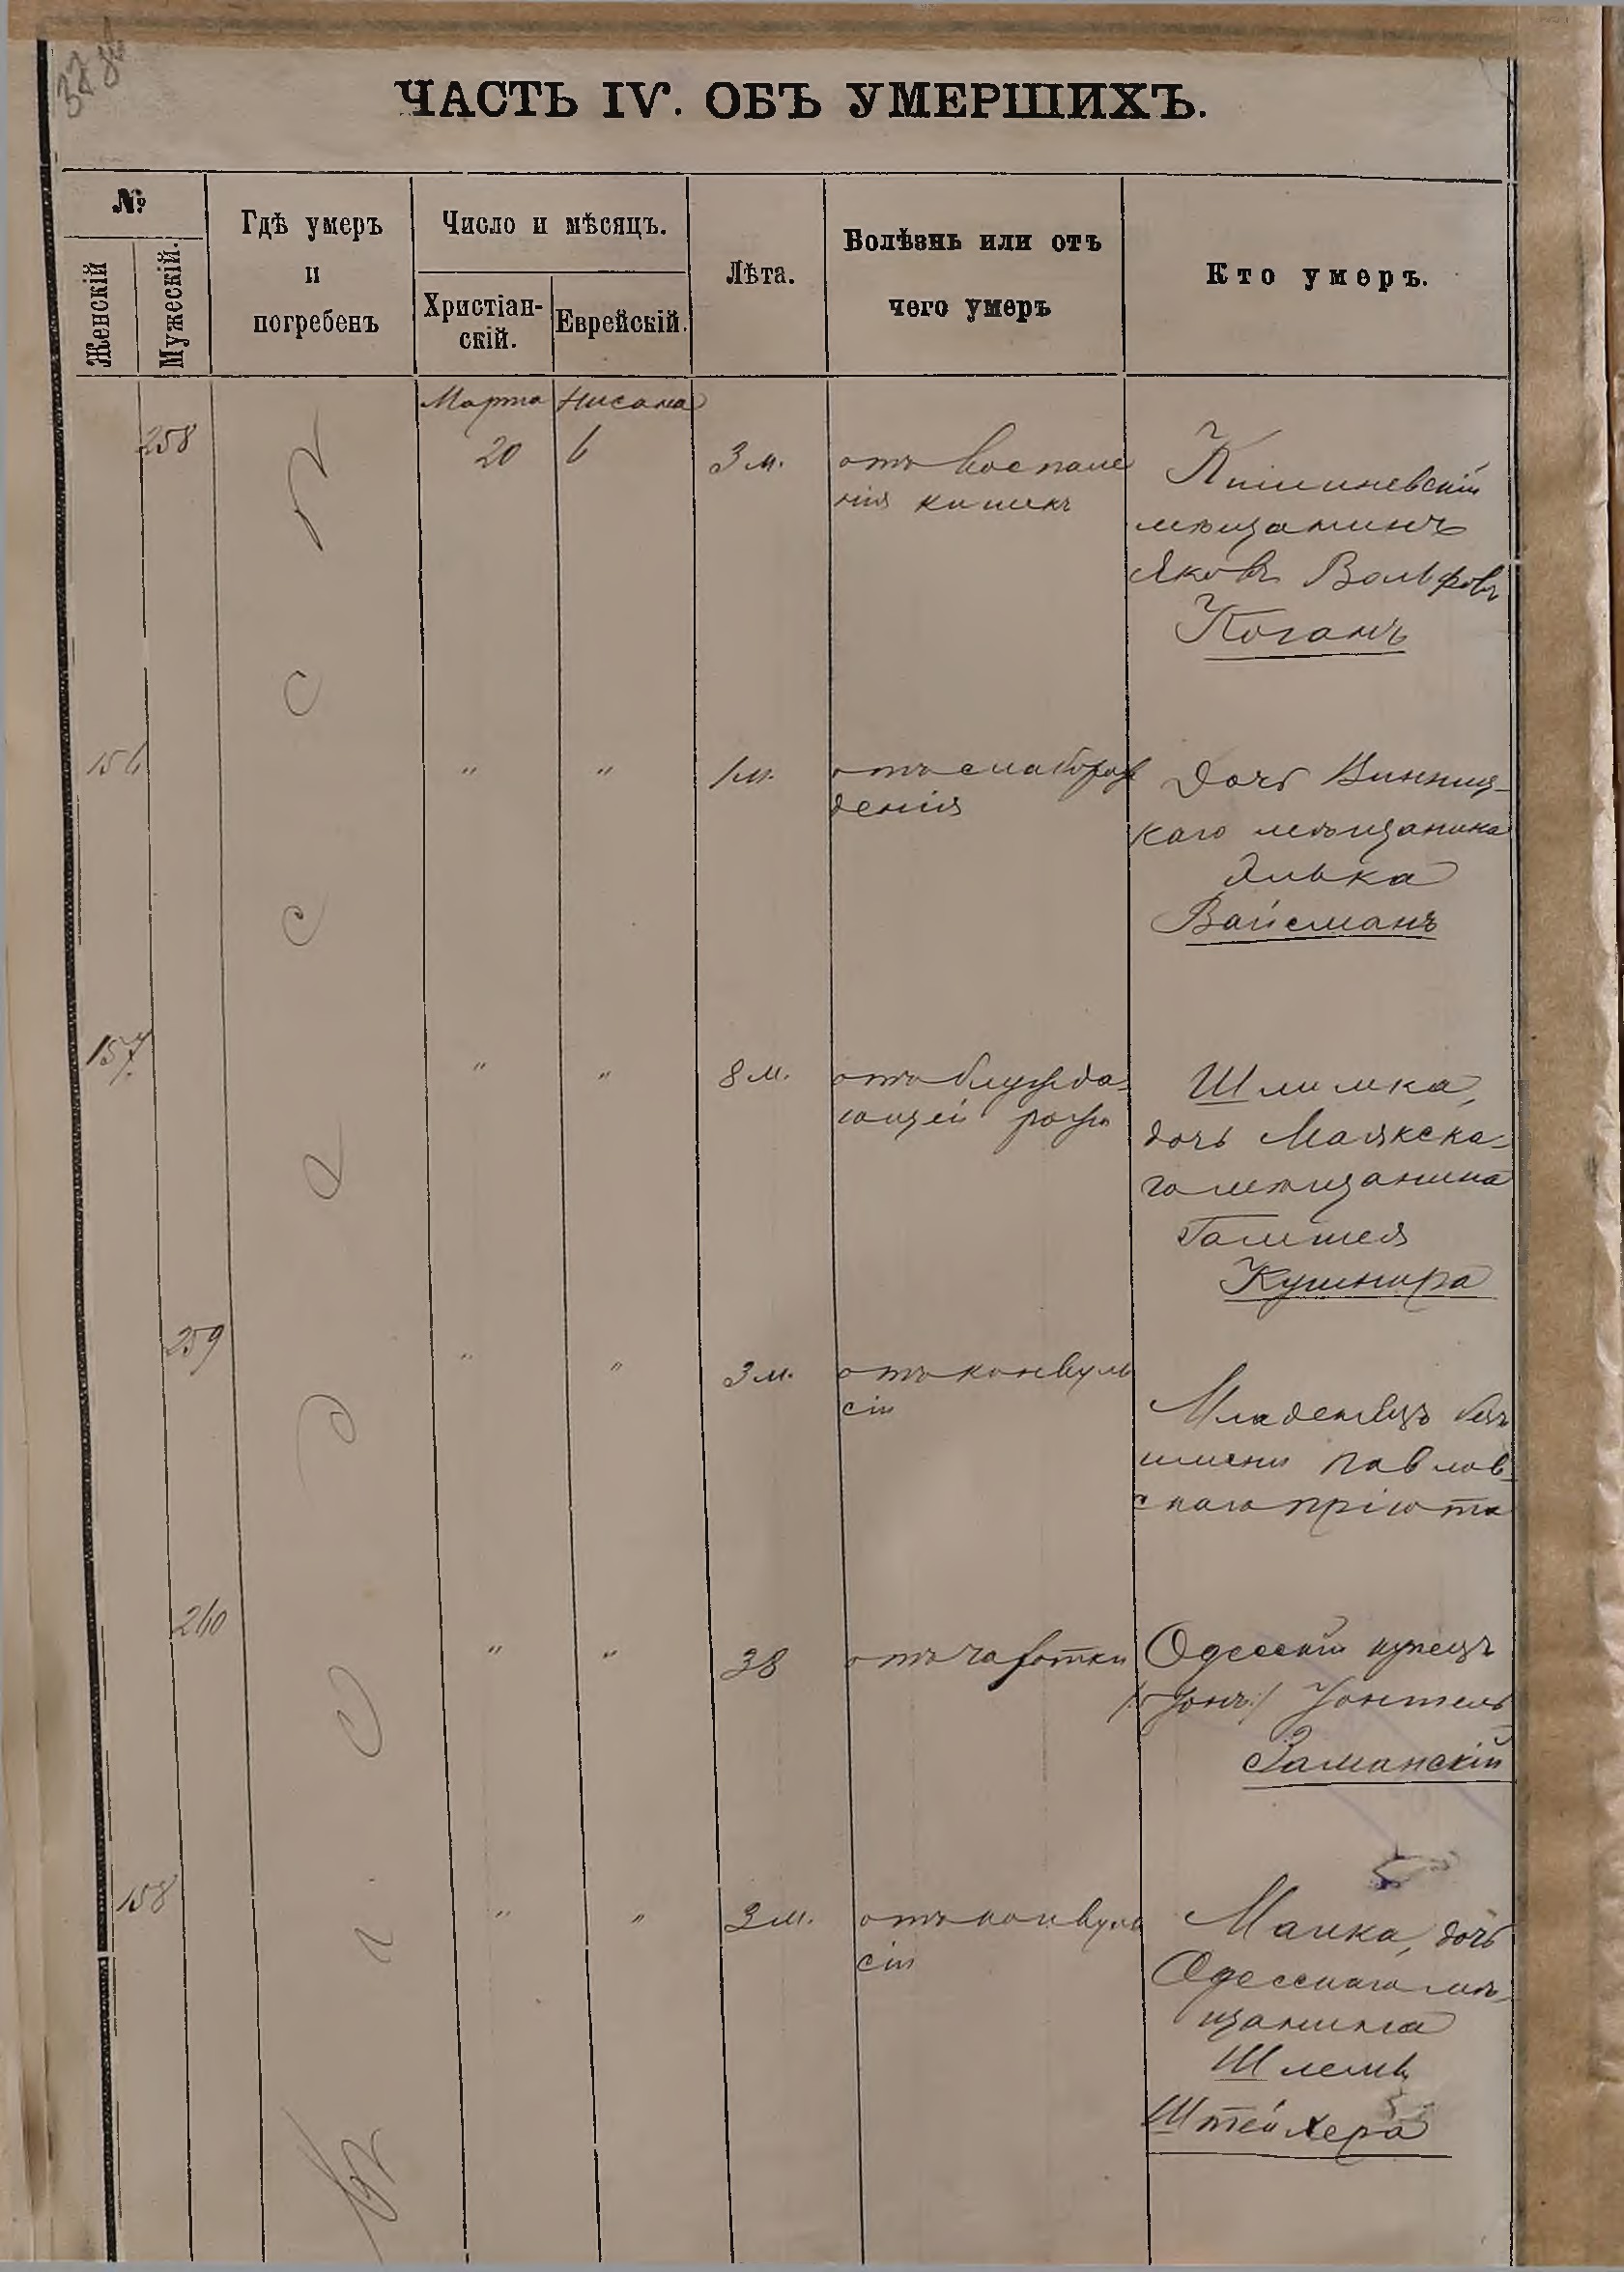 ЧАСТЬ IV. ОБЪ УМЕРШИХЪ.
№
Женскій
Мужескій.
Гдѣ умеръ
и
погребенъ
Число и мѣсяцъ.
Христіан-
скій.
Еврейскій.
Лѣта.
Болѣзнь или отъ
чего умеръ
Кто умеръ.
въ г. Одессѣ
Марта Нисана
258 20 6 3 м. отъ воспале
нія кишекъ
Кишиневскій
мѣщанинъ
Яковъ Вольфовъ
Коганъ
156 " " 1 м. отъ слаборож
денія
Дочь Винниц-
каго мѣщанина
Элька
Вайсманъ
157 " " 8 м. отъ блужда-
ющей рожи
Шлимка,
дочь Маякска-
го мѣщанина
Кушнира
259 " " 3 м. отъ конвуль
сіи
Младенецъ безъ
имени Павлов-
скаго пріюта
260 " " 38 отъ чахотки
Одесскій купецъ
Заманскій
158 " " 3 м. отъ конвуль
сіи
Малка, дочь
Одесскаго мѣ-
щанина
Шлемы
Штейнера